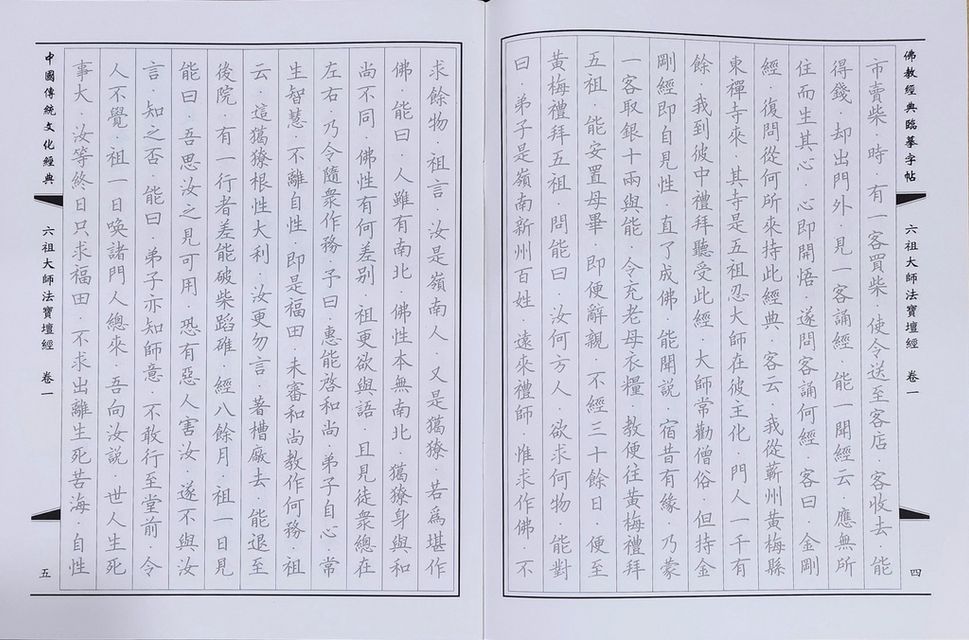 佛教經典臨摹字帖
六祖大師法寶壇經 卷一
四
市賣柴·時·有一客買柴·使令送至客店·客收去·能
得錢·却出門外·見一客誦經·能一聞經云·應無所
住而生其心·心即開悟·遂問客誦何經·客曰·金剛
經·復問從何所來持此經典·客云·我從蘄州黃梅縣
東禪寺來·其寺是五祖忍大師在彼主化·門人一千有
餘·我到彼中禮拜聽受此經·大師常勸僧俗·但持金
剛經即自見性·直了成佛·能聞說·宿昔有緣·乃蒙
一客取銀十兩與能·令充老母衣糧·教便往黃梅禮拜
五祖·能安置母畢·即便辭親·不經三十餘日·便至
黃梅禮拜五祖·問能曰·汝何方人·欲求何物·能對
曰·弟子是嶺南新州百姓·遠來禮師·惟求作佛·不
求餘物·祖言·汝是嶺南人·又是獦獠·若爲堪作
佛·能曰·人雖有南北·佛性本無南北·獦獠身與和
尚不同·佛性有何差别·祖更欲與語·且見徒衆總在
左右·乃令隨衆作務·予曰·惠能啓和尚·弟子自心·常
生智慧·不離自性·即是福田·未審和尚教作何務·祖
云·這獦獠根性大利·汝更勿言·著槽廠去·能退至
後院·有一行者差能破柴蹈碓·經八餘月·祖一日見
能曰·吾思汝之見可用·恐有惡人害汝·遂不與汝
言·知之否·能曰·弟子亦知師意·不敢行至堂前·令
人不覺·祖一日喚諸門人總來·吾向汝説·世人生死
事大·汝等終日只求福田·不求出離生死苦海·自性
中國傳統文化經典
六祖大師法寶壇經 卷一
五